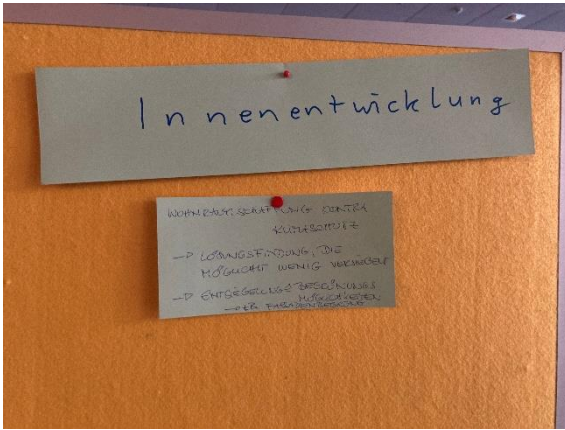 Innenentwicklung
WOHNRAUMSCHAFFUNG CONTRA
KLIMASCHUTZ
→ LÖSUNGSFINDUNG, DIE
MÖGLICHST WENIG VERSIEGELT
→ ENTSIEGELUNGS BEGRÜNUNGS
MÖGLICHKEITEN
FASSADENBEGRÜNUNG